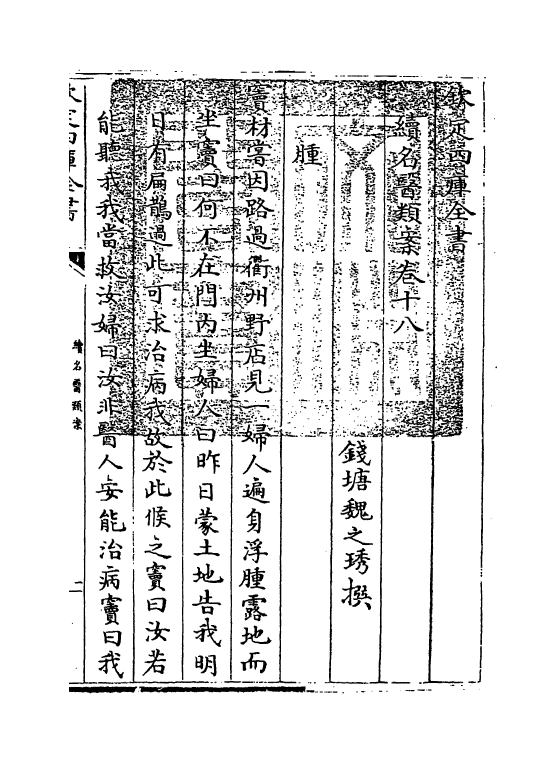 欽定四庫全書
續名醫類案卷十八
錢塘魏之琇撰
腫
竇材嘗因路過衢州野店見一婦人遍身浮腫露地而
坐竇曰何不在門內坐婦人曰昨日蒙土地告我明
日有扁鵲過此可求治病我故於此候之竇曰汝若
能聽我我當救汝婦曰汝非醫人安能治病竇曰我
欽定四庫全書
續名醫類案
二